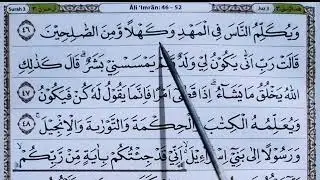 Surah 3 Âli 'Imrân: 46 - 52 Juz 3
وَيُكَلِّمُ النَّاسَ فِي الْمَهْدِ وَكَهْلًا وَمِنَ الصّٰلِحِيْنَ ﴿٤٦﴾
قَالَتْ رَبِّ اَنّٰى يَكُوْنُ لِيْ وَلَدٌ وَّلَمْ يَمْسَسْنِيْ بَشَرٌ ۗ قَالَ كَذٰلِكِ
اللّٰهُ يَخْلُقُ مَا يَشَاۤءُ ۗ اِذَا قَضٰٓى اَمْرًا فَاِنَّمَا يَقُوْلُ لَهٗ كُنْ فَيَكُوْنُ ﴿٤٧﴾
وَيُعَلِّمُهُ الْكِتٰبَ وَالْحِكْمَةَ وَالتَّوْرٰىةَ وَالْاِنْجِيْلَ ۚ ﴿٤٨﴾
وَرَسُوْلًا اِلٰى بَنِيْٓ اِسْرَاۤءِيْلَ ۙ اَنِّيْ قَدْ جِئْتُكُمْ بِاٰيَةٍ مِّنْ رَّبِّكُمْ ۙ